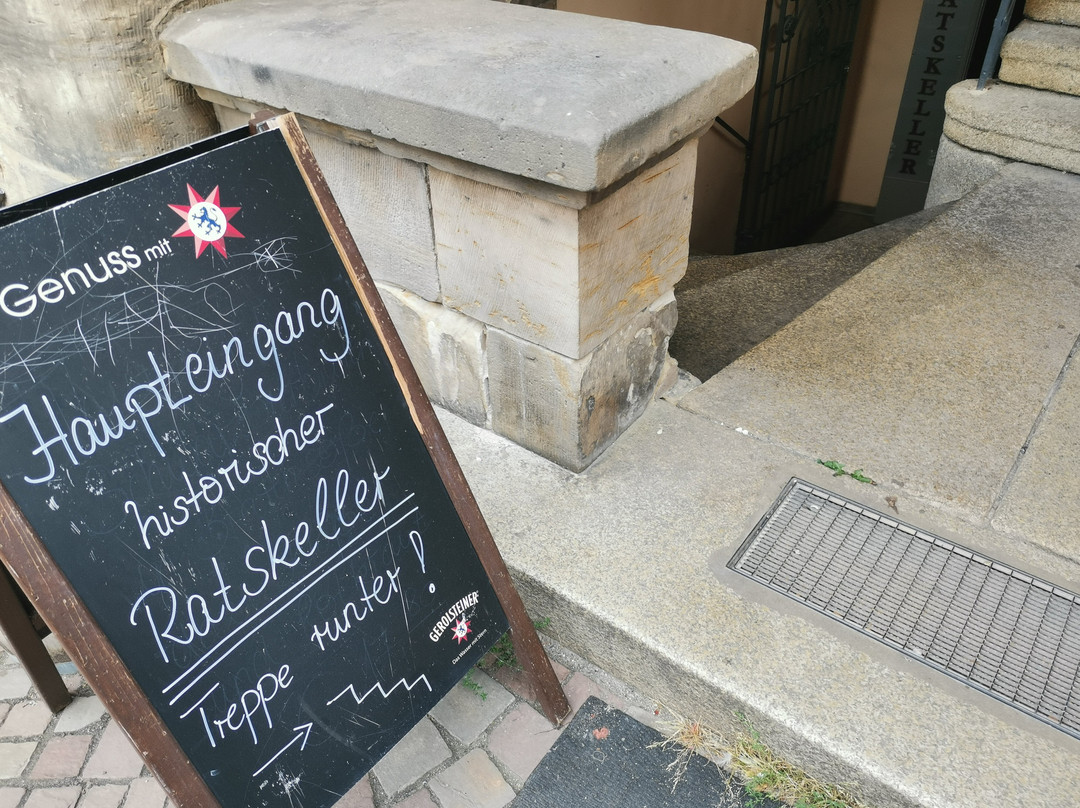 Genuss mit
Haupteingang
historischer
Ratskeller
Treppe runter!
GEROLSTEINER
Das Wasser mit Stern
ATSKELLER